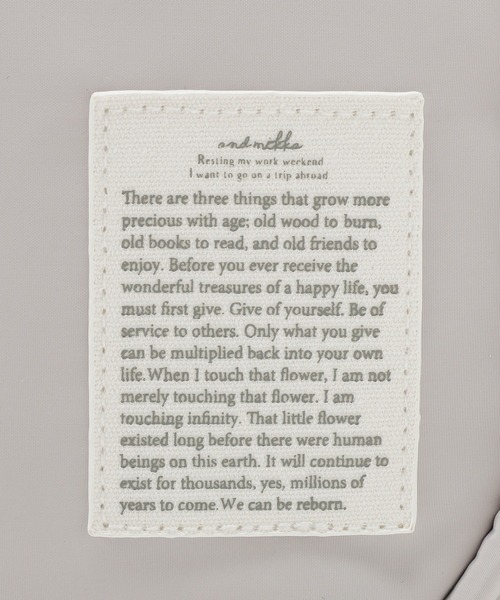 and mikke
Resting my work weekend
I want to go on a trip abroad
There are three things that grow more
precious with age; old wood to burn,
old books to read, and old friends to
enjoy. Before you ever receive the
wonderful treasures of a happy life, you
must first give. Give of yourself. Be of
service to others. Only what you give
can be multiplied back into your own
life.When I touch that flower, I am not
merely touching that flower. I am
touching infinity. That little flower
existed long before there were human
beings on this earth. It will continue to
exist for thousands, yes, millions of
years to come.We can be reborn.